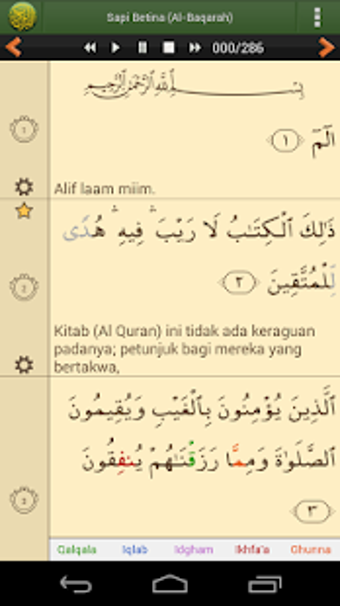 Sapi Betina (Al-Baqarah)
000/286
بِسْمِ ٱللَّهِ ٱلرَّحْمَٰنِ ٱلرَّحِيمِ
الٓمٓ ﴿١﴾
1
Alif laam miim.
ذَٰلِكَ ٱلْكِتَٰبُ لَا رَيْبَ ۛ فِيهِ ۛ هُدًى
لِّلْمُتَّقِينَ ﴿٢﴾
2
Kitab (Al Quran) ini tidak ada keraguan
padanya; petunjuk bagi mereka yang
bertakwa,
ٱلَّذِينَ يُؤْمِنُونَ بِٱلْغَيْبِ وَيُقِيمُونَ
ٱلصَّلَوٰةَ وَمِمَّا رَزَقْنَٰهُمْ يُنفِقُونَ
﴿٣﴾
3
Qalqala Iqlab Idgham Ikhfa'a Ghunna